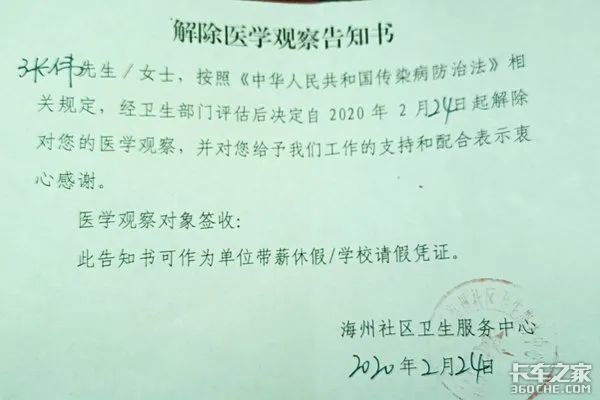 解除医学观察告知书
张伟先生/女士，按照《中华人民共和国传染病防治法》相
关规定，经卫生部门评估后决定自 2020 年 2 月24日起解除
对您的医学观察，并对您给予我们工作的支持和配合表示衷
心感谢。
医学观察对象签收：
此告知书可作为单位带薪休假/学校请假凭证。
海州社区卫生服务中心
2020年2月24日
卡车之家
360che.com